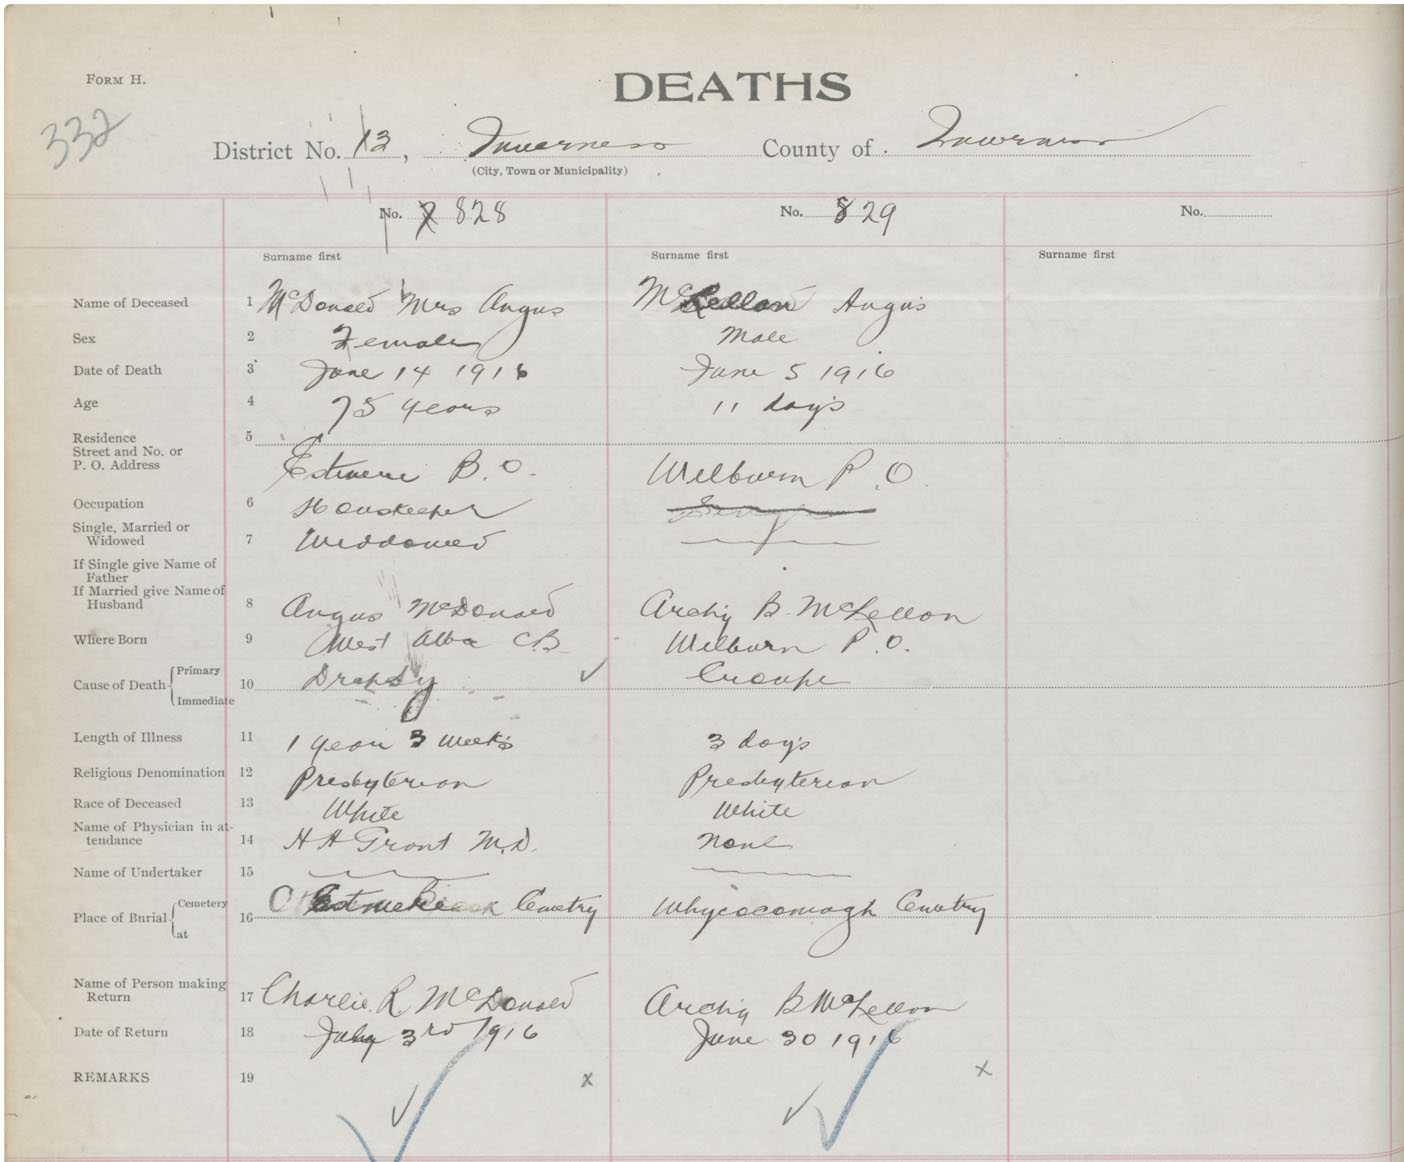 FORM H.
DEATHS
332
District No. 13, Inverness County of Inverness
(City, Town or Municipality)
No. 828
No. 829
No.
Surname first
Surname first
Surname first
Name of Deceased 1 McDonald Mrs Angus McLellan Angus
Sex 2 Female Male
Date of Death 3 June 14 1916 June 5 1916
Age 4 75 years 11 days
Residence 5
Street and No. or
P. O. Address P.O. Welburn P.O.
Occupation 6 Houskeeper
Single, Married or
Widowed 7 Widdowed
If Single give Name of
Father
If Married give Name of
Husband 8 Angus McDonald Archy B. McLellon
Where Born 9 West Alba C.B. Welburn P.O.
Cause of Death Primary 10 Dropsy Croupe
Immediate
Length of Illness 11 1 year 3 weeks 3 days
Religious Denomination 12 Presbyterian Presbyterian
Race of Deceased 13 White White
Name of Physician in at-
tendance 14 H H Grant M.D. None
Name of Undertaker 15
Place of Burial Cemetery 16 Cemetry Whycocomagh Cemetry
at
Name of Person making
Return 17 Charlie R McDonald Archy B McLellon
Date of Return 18 July 3rd 1916 June 30 1916
REMARKS 19 x x